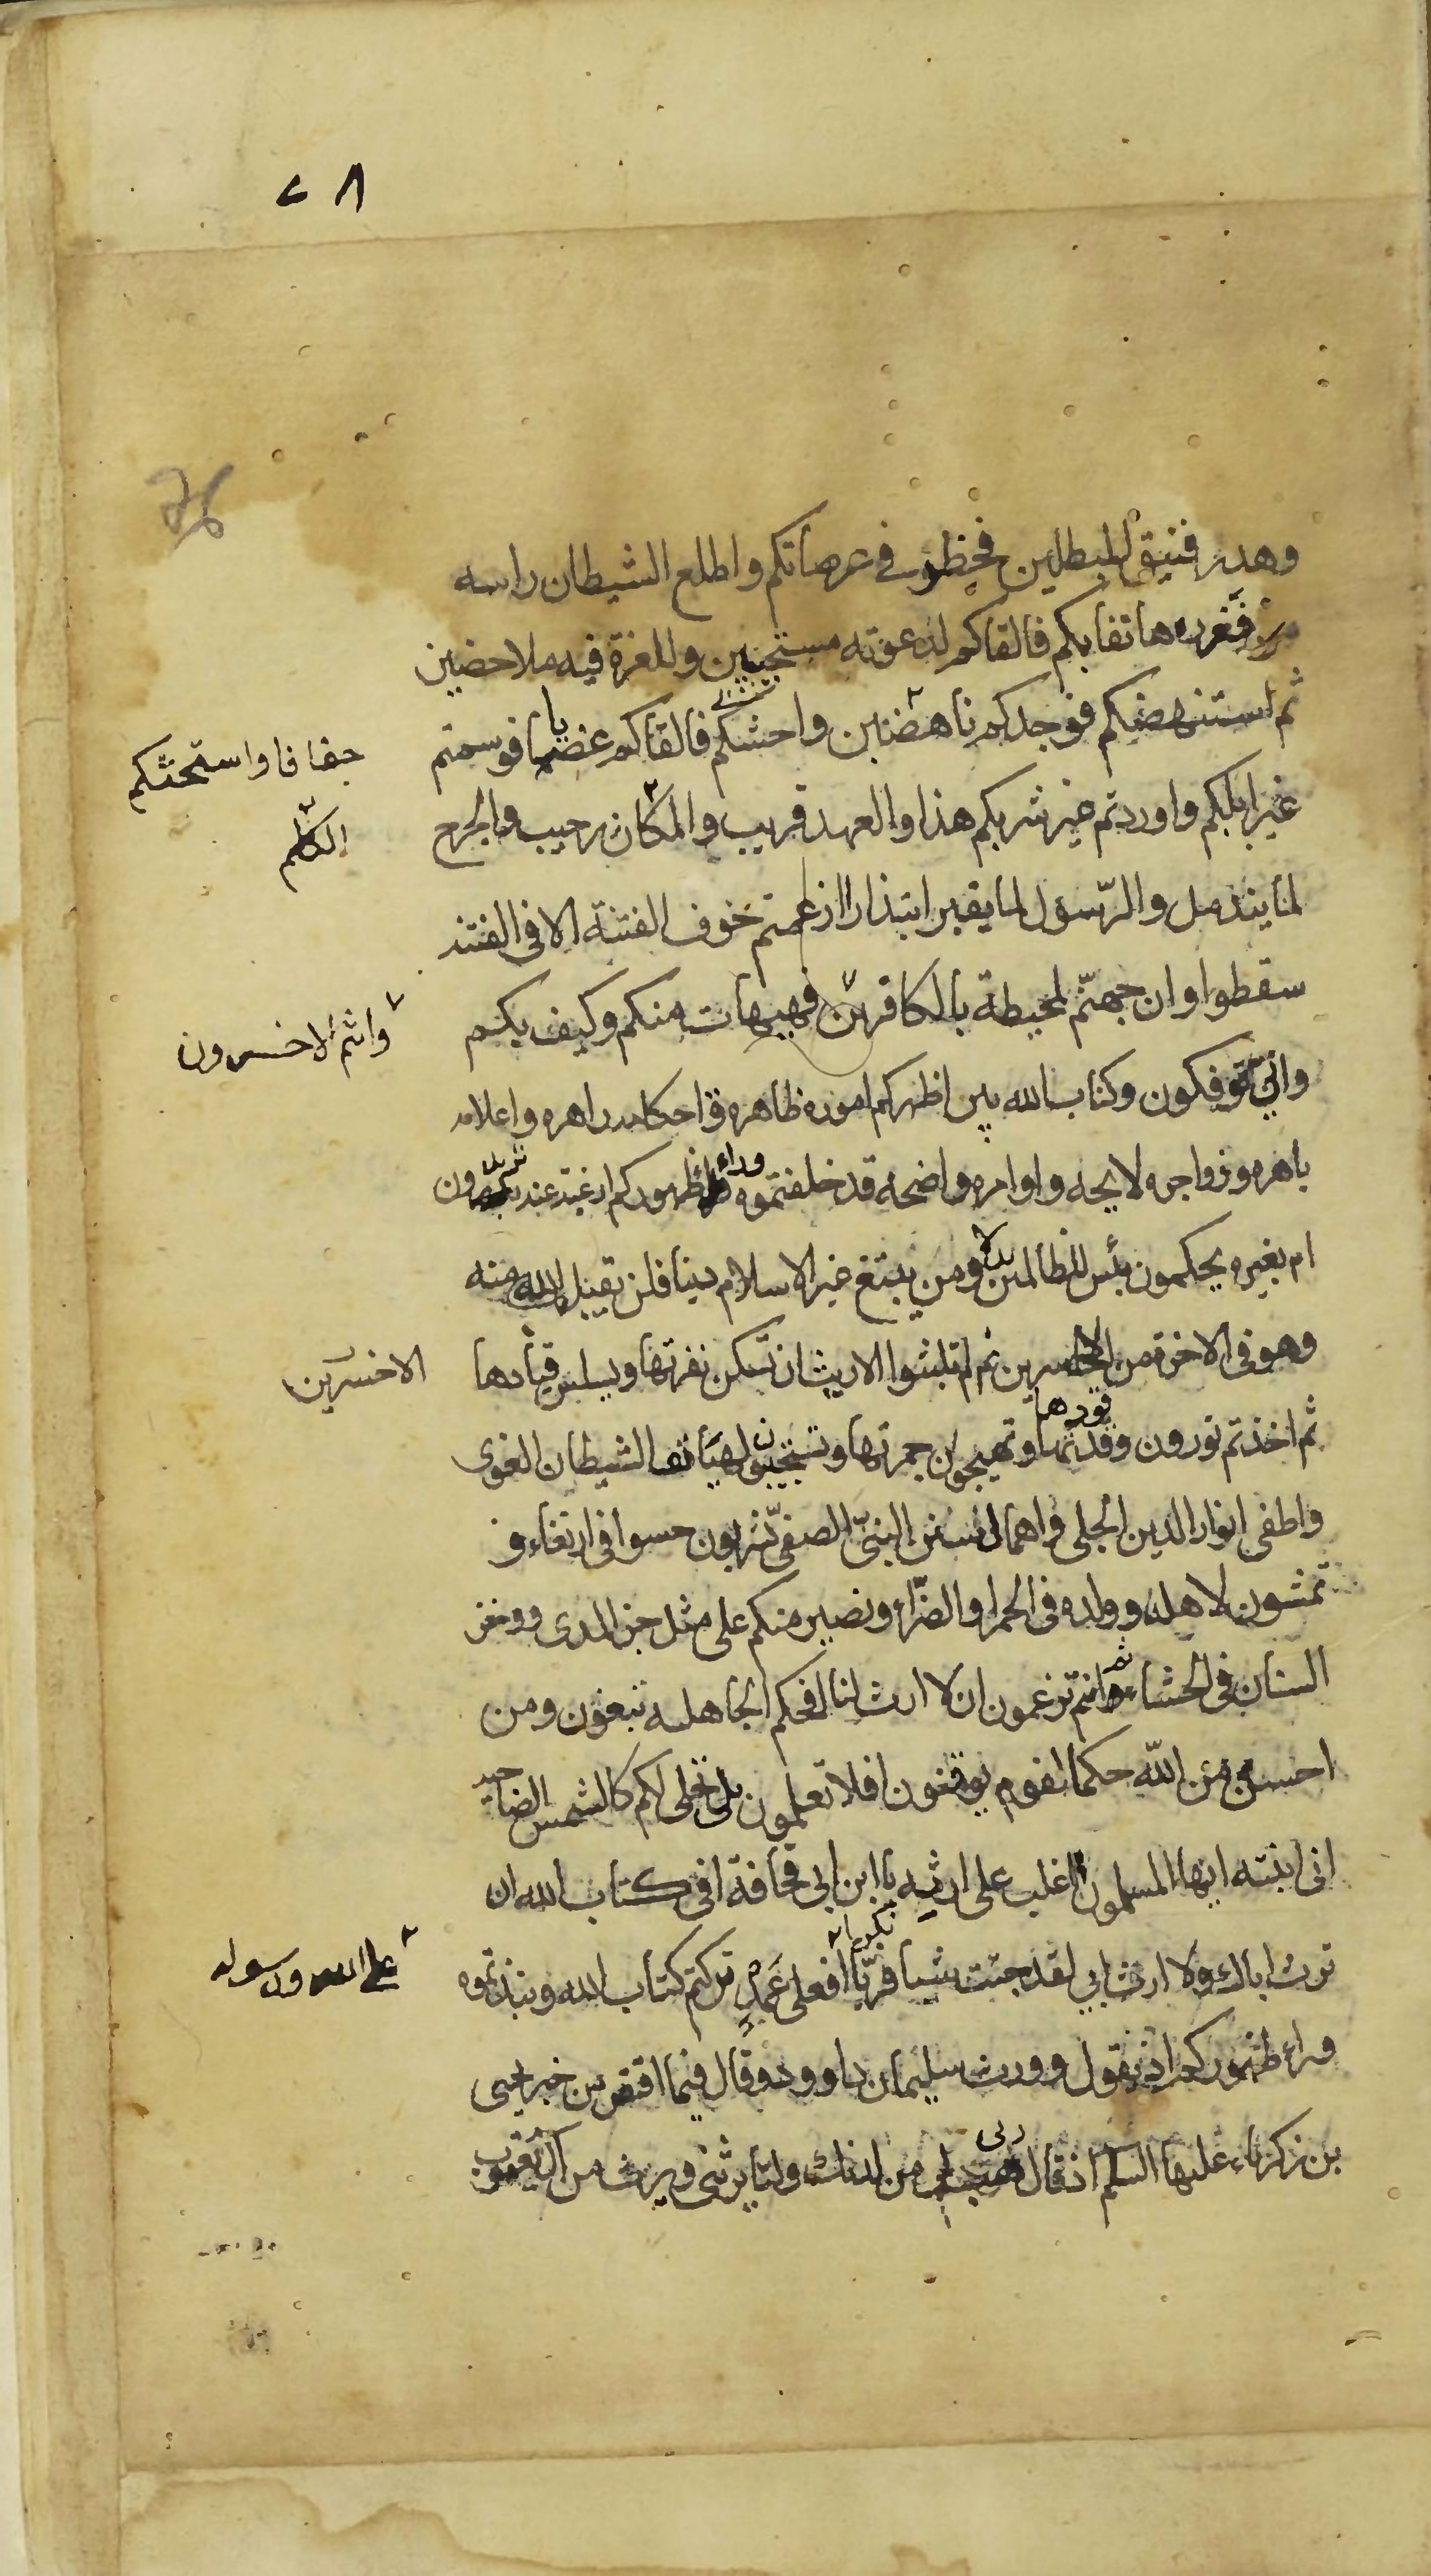 ٧٨
وهدر فنيق المبطلين فخطر في عرصاتكم واطلع الشيطان راسه
من مغرزه هاتفا بكم فالفاكم لدعوته مستجيبين وللغرة فيه ملاحضين
ثم استنهضكم فوجدكم ناهضين واحشكم فالفاكم غضابا فوسمتم
خفافا واستحثكم
غير ابلكم واوردتم غير شربكم هذا والعهد قريب والمكان رحيب والجرح
الكلم
لما يندمل والرّسول لما يقبر ابتذارا زعمتم خوف الفتنة الا فى الفتنه
سقطوا وان جهنّم لمحيطة بالكافرين فهيهات منكم وكيف بكم
وانتم الاخسرون
وانّى تؤفكون وكتاب الله بين اظهركم اموره ظاهره واحكامه زاهره واعلامه
باهره وزواجره لايحه واوامره واضحه قد خلفتموه وراء ظهوركم ارغبة عنه تريدون
ام بغيره تحكمون بئس للظالمين بدلا ومن يبتغ غير الاسلام دينا فلن تقبل الله منه
وهو فى الاخرة من الخاسرين ثم لم تلبثوا الا ريث ان تسكن نفرتها ويسلس قيادها
الاخسرين
ثم اخذتم تورون وقدتها وتهيجون جمرتها وتستجيبون لهتاف الشيطان الغوى
قودها
واطفى انوار الدين الجلى واهمال سنن النبىّ الصفىّ تشربون حسوا فى ارتغاء و
تمشون لاهله وولده فى الخمر والضرّاء ونصبر منكم على مثل حز المدى ووخز
السنان فى الحشاء ثم انتم تزعمون ان لا ارث لنا افحكم الجاهليه تبغون ومن
احسن من اللّه حكما لقوم يوقنون افلا تعلمون بلى تجلى لكم كالشمس الضاحيه
انى ابنته ايها المسلمون اغلب على ارثيه يا ابن ابى قحافة افى كتاب الله ان
ترث اباك ولا ارث ابى لقد جئت شيا فريّا افعلى عمدٍ تركتم كتاب الله ونبذتموه
على الله ورسوله
وراء ظهوركم اذ يقول وورث سليمان داوود وقال فيما اقتص من خبر يحيى
بن زكرياء عليها السلم اذ قال ربى هب لى من لدنك وليّا يرثنى ويرث من آل يعقوب